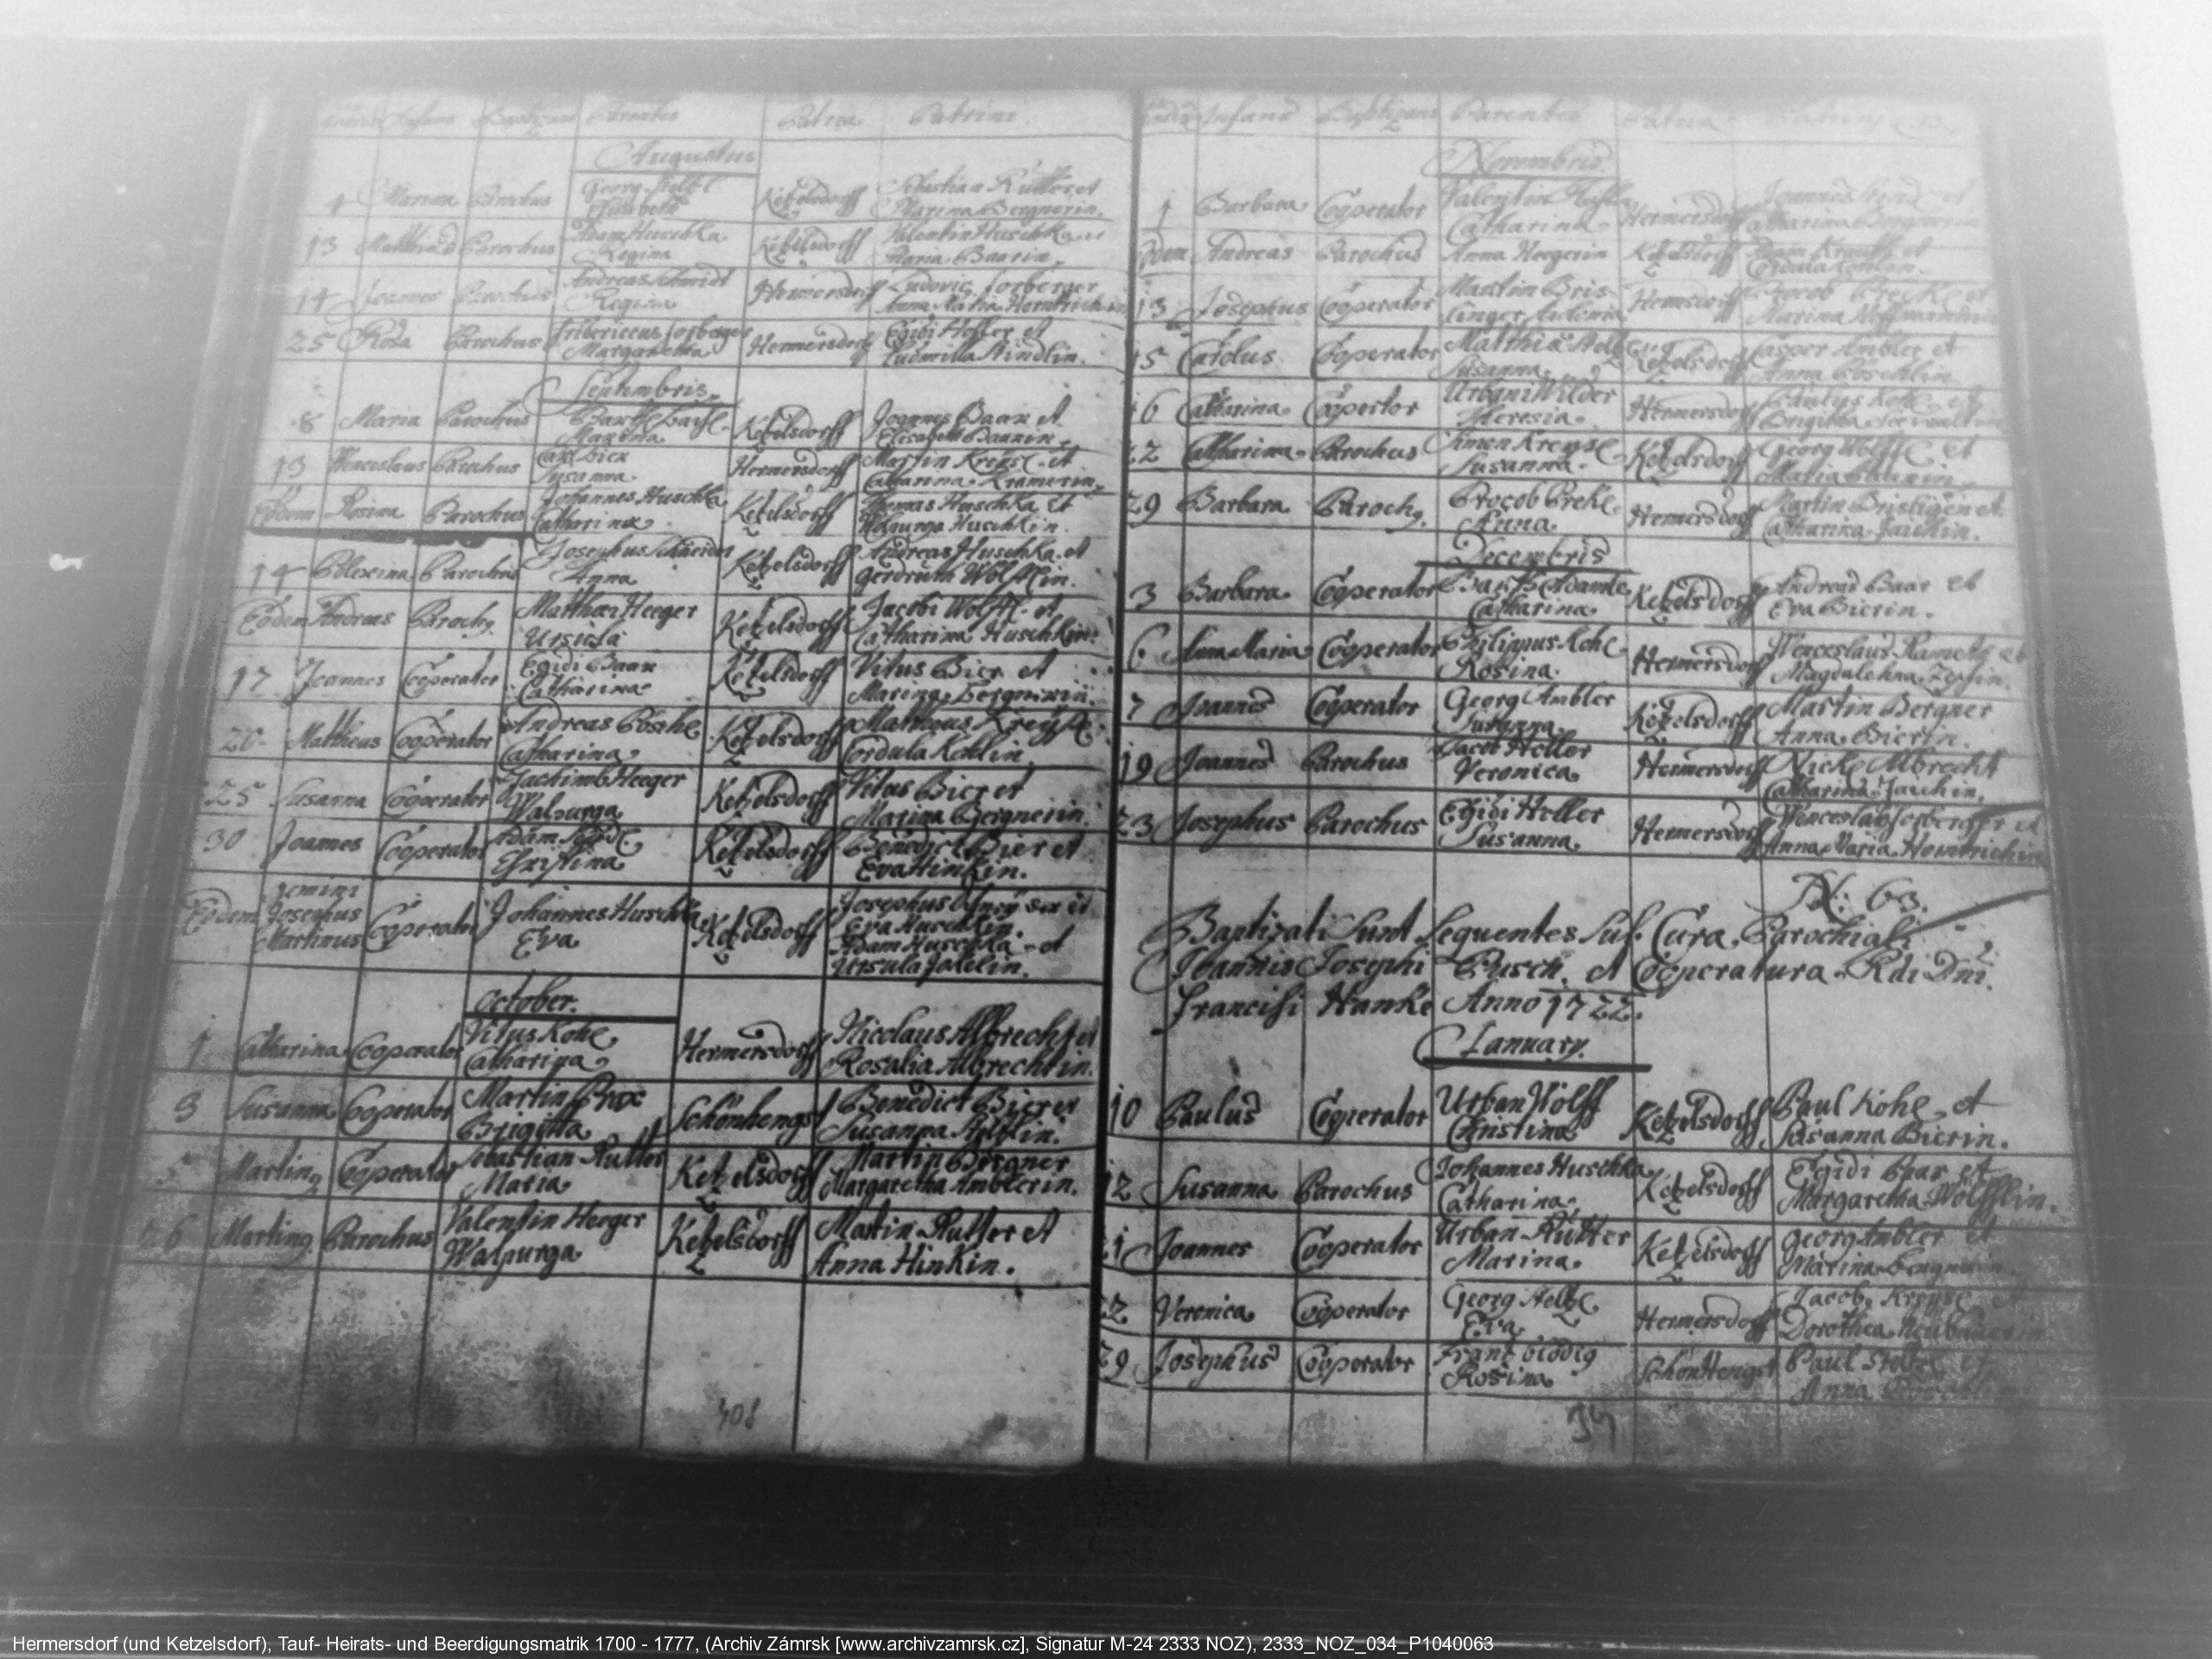 Infans Baptizans Parentes Patria Patrini
Augustus
4 Marina Parochus Georg Steltzl Elisabeth Ketzelsdorff Sebastian Rutter et Marina Bergnerin.
13 Matthias Parochus Adam Huschka Regina Ketzelsdorff Valentin Huschka et Maria Baarin.
14 Joannes Parochus Andreas Schmidt Regina Hermersdorff Ludovic Forberger Anna Maria
25 Rosa Parochus Fridericus Forberger Margaretha Hermersdorff Egidi Heller et Ludmilla Rindlin.
Septembris.
8 Maria Parochus Marina Ketzelsdorff Joannes Baar et Elisabeth Baarin.
13 Wenceslaus Parochus Carl Bier Susanna. Hermersdorff Martin Kreysl. et Catharina Kramerin.
Eodem Rosina Parochus Johannes Huschka Catharina. Ketzelsdorff Thomas Huschka et Walpurga Huschkin.
14 Polexina Parochus Josephus Schneider Anna Ketzelsdorff Andreas Huschka. et Gerdruth Wölfflin.
Eodem Andreas Paroch9. Matthæi Heeger Ursula Ketzelsdorff Jacobi Wolff. et Catharina Huschkin.
17 Joannes Cooperator Egidi Baar Catharina Ketzelsdorff Vitus Bier et Marina Bergnerin.
20. Mattheus Cooperator Andreas Pöschl Catharina Ketzelsdorff Mattheus Kreyssl. Cordula Kohlin.
25 Susanna Cooperator Joachimb Heeger Walpurga Ketzelsdorff Vitus Bier et Marina Bergnerin.
30 Joannes Cooperator Adam Christina Ketzelsdorff Benedict Bier et Eva Hinkin.
Eodem gemini Josephus Martinus Cooperator Johannes Huschka Eva Ketzelsdorff Josephus et Eva Huschkin. Adam Huschka et Ursula
October.
1 Catharina Cooperator Vitus Kohl Catharina Hermersdorff Nicolaus Albrecht et Rosalia Albrechtin.
3 Susanna Cooperator Martin Brigitta Schönhengst Benedict Bier et Susanna Steltzlin.
5 Martin9 Cooperator Sebastian Rutter Maria Ketzelsdorff Martin Bergner Margaretha Amblerin.
26 Martin9 Parochus Valentin Heeger Walpurga Ketzelsdorff Martin Rutter et Anna Hinkin.
408
Infans Baptizans Parentes Patria
Novembris.
1 Barbara Cooperator Valentin Catharina Hermersdorff Joannes et Catharina Bergnerin
Eodem Andreas Parochus Anna Heegerin Ketzelsdorff Adam et Cordula Kohlin.
13 Josephus Cooperator Martin Brislinger Hermsdorff Jacob Prekl et Marina Hoffmannin
15 Carolus Cooperator Matthia Susanna Ketzelsdorff Casper Ambler et Anna Pöschlin
16 Catharina Coopertor Urbani Wilder Theresia. Hermersdorff Paulus Kohl et Brigitta
22 Catharina Parochus Simon Kreysl Susanna. Ketzelsdorff Georg Wolff et Maria Baarin.
29 Barbara Paroch9. Procob Prekl. Anna Hermersdorff Martin et Catharina Jaschin.
Decembris
3 Barbara Cooperator Catharina Ketzelsdorff Andreas Baar et Eva Bierin.
6 Anna Maria Cooperator Philippus Kohl Rosina. Hermersdorff Wenceslaus et Magdalehna
7 Joannes Cooperator Georg Ambler Susanna Ketzelsdorff Martin Bergner Anna Bierin.
19 Joannes Parochus Jacob Heller Veronica Hermersdorff Nickl Albrecht Catharina Jaschin.
23 Josephus Parochus Egidi Heller Susanna. Hermersdorff Wenceslaus Forberger et Anna Maria
N: 63.
Baptizati Sunt Sequentes Sub Cura Parochiali
Joannis Josephi Pusch. et Cooperatura Rdi Dni.
Francisi Hanke Anno 1722.
January.
10 Paulus Cooperator Urban Wolff Christina Ketzelsdorff Paul Kohl et Susanna Bierin.
12 Susanna Parochus Johannes Huschka Catharina Ketzelsdorff Egidi Baar et Margaretha Wölfflin.
21 Joannes Cooperator Urban Rutter Marina. Ketzelsdorff Georg Ambler et Marina
22 Veronica Cooperator Georg Eva Hermersdorff Jacob Kreysl et Dorothea Neubauerin
29 Josephus Cooperator Frantz Rosina Schönhengst Paul Steltzl et Anna
34
Hermersdorf (und Ketzelsdorf), Tauf- Heirats- und Beerdigungsmatrik 1700 - 1777, (Archiv Zámrsk [www.archivzamrsk.cz], Signatur M-24 2333 NOZ), 2333_NOZ_034_P1040063